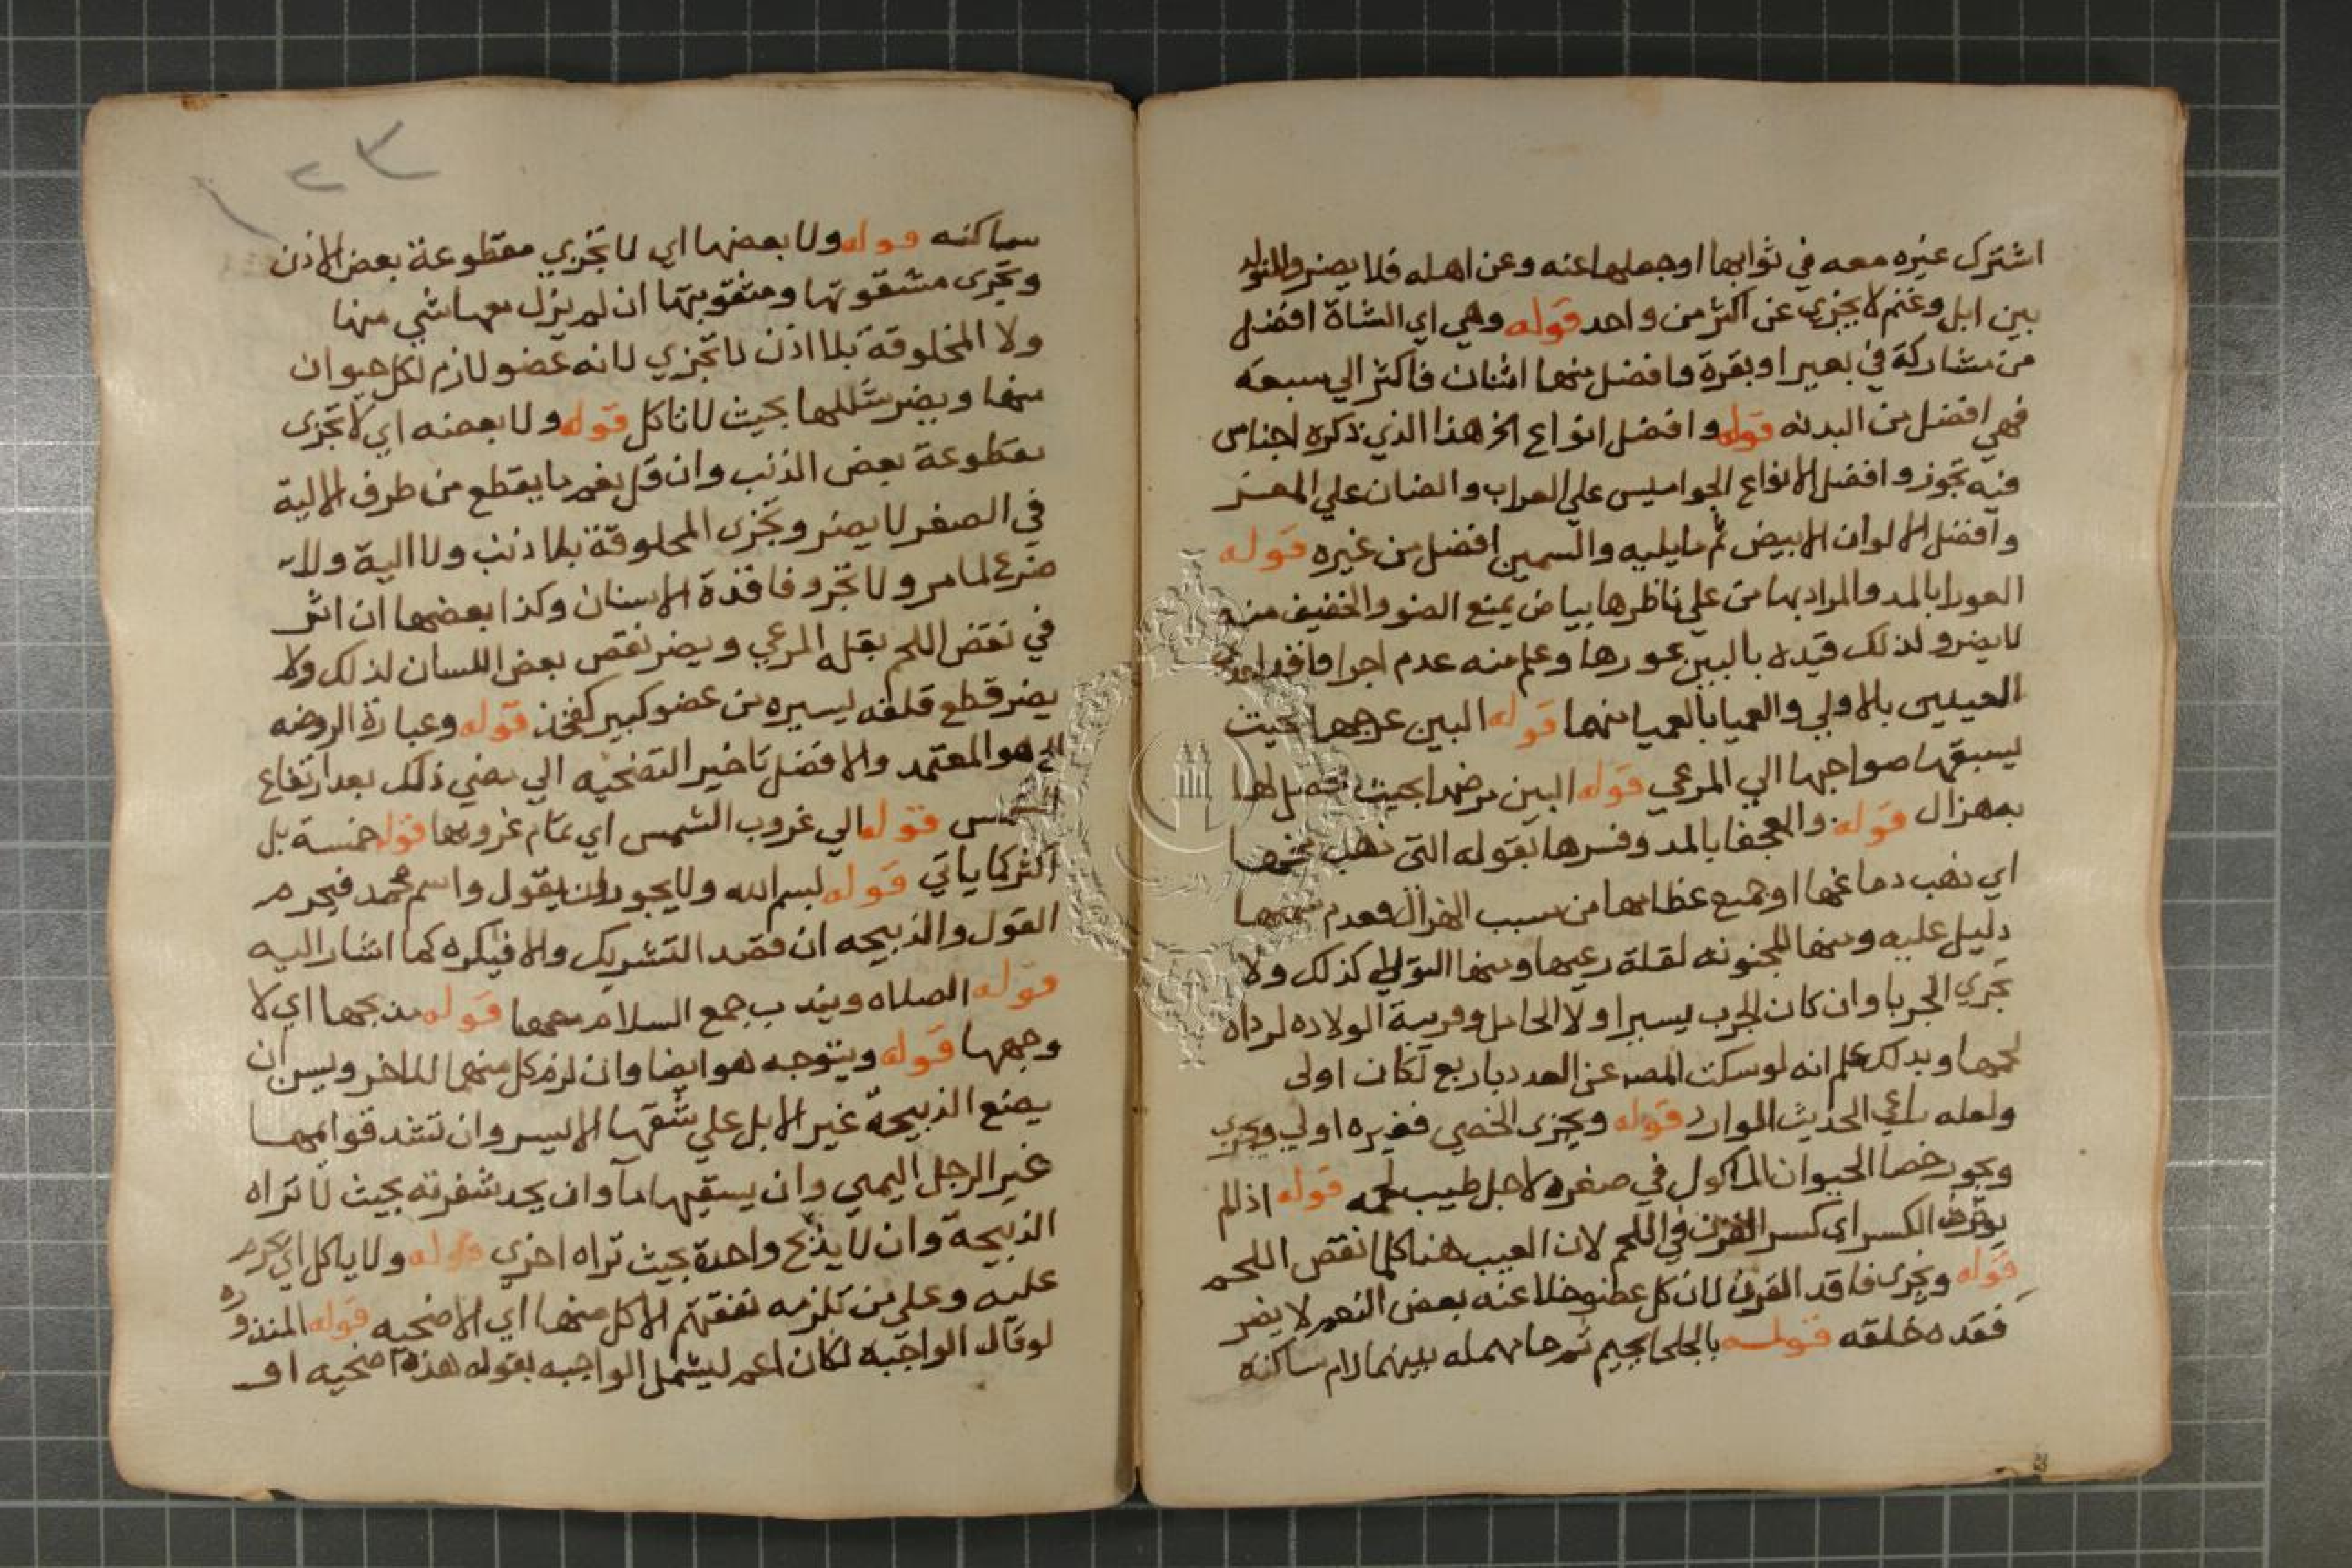 اشترك غيره معه في ثوابها اوجعلها عنه وعن اهله فلا يضر والمتولد
بين ابل وغنم لا يجزي عن اكثر من واحد قوله وهي اي الشاة افضل
من مشاركة في بعير او بقرة وافضل منها اثنان فاكثر الي سبعة
فهي افضل من البدنه قوله وافضل انواع الخ هذا الذي ذكره اجناس
فيه تجوز وافضل الانواع الجواميس علي العراب والضان علي المعز
وافضل الالوان الابيض ثم مايليه والسمين افضل من غيره قوله
العورا بالمد والمراد بها من علي ناظرها بياض يمنع الضو والخفيف منه
لا يضر ولذلك قيده بالبين عورها وعلم منه عدم اجرا فاقد احدي
العينين بالاولي والعميا بالعميا منهما قوله البين عرجها بحيث
يسبقها صواحبها الي المرعي قوله البين مرضها بحيث يحصل لها
بهزال قوله والعجفا بالمد وفسرها بقوله التي ذهب مخها
اي ذهب دماغها اوجميع عظامها من سبب الهزال وعدم سمنها
دليل عليه ومنها المجنونه لقلة رعيها ومنها التولا كذلك ولا
تجزي الجربا وان كان الجرب يسيرا ولا الحامل وقريبة الولاده لرداه
لحمها وبذلك علم انه لو سكت المصـ عن العدد باربع لكان اولى
ولعله راعي الحديث الوارد قوله ويجزى الخصي فغيره اولي ويجزي
ويجوز خصا الحيوان الماكول في صغره لاجل طيب لحمه قوله اذالم
يوثر الكسر اي كسر القرن في اللحم لان العيب هنا كلما نقص اللحم
قوله وتجزى فاقد القرن لان كل عضو خلا عنه بعض النعم لا يضر
فقده خلقه قوله بالجلحا بجيم ثم حا مهمله بينهما لام ساكنة
ساكنه قوله ولا بعضها اي لا تجزي مقطوعة بعض الاذن
وتجزى مشقوقتها ومثقوبتها ان لم يزل بهما شي منها
ولا المخلوقة بلا اذن لا تجزي لانه عضو لازم لكل حيوان
منها ويضر شللها بحيث لا تاكل قوله ولا بعضه اي لا تجزى
مقطوعة بعض الذنب وان قل نعم ما يقطع من طرف الالية
في الصغر لا يضر وتجزى المخلوقة بلا ذنب ولا الية ولا
ضرع لما مر ولا تجزو فاقدة الاسنان وكذا بعضها ان اثر
في نقص اللحم بقلة المرعي ويضر نقص بعض اللسان لذلك ولا
يضر قطع قلفه يسيره من عضو كبير كفخذ قوله وعبارة الروضه
الخ هو المعتمد والافضل تاخير التضحيه الي مضي ذلك بعد ارتفاع
الشمس قوله الي غروب الشمس اي تمام غروبها قوله خمسة بل
اكثر كما ياتي قوله بسم الله ولا يجوز ان يقول واسم محمد فيحرم
القول والذبيحه ان قصد التشريك والا فيكره كما اشار اليه
قوله الصلاه ويندب جمع السلام معها قوله مذبحها اي لا
وجهها قوله ويتوجه هو ايضا وان لزم كل منهما للاخر ويسن ان
يضع الذبيحة غير الابل علي شقها الايسر وان تشد قوايمها
غير الرجل اليمني وان يسقيها مآ وان يحد شفرته بحيث لا تراه
الذبيحة وان لا يذبح واحدة بحيث تراه اخري قوله ولا ياكل اي يحرم
عليه وعلي من تلزمه نفقتهم الاكل منها اي الاضحيه قوله المنذوره
لو قال الواجبه لكان اعم ليشمل الواجبه بقوله هذه اضحيه او